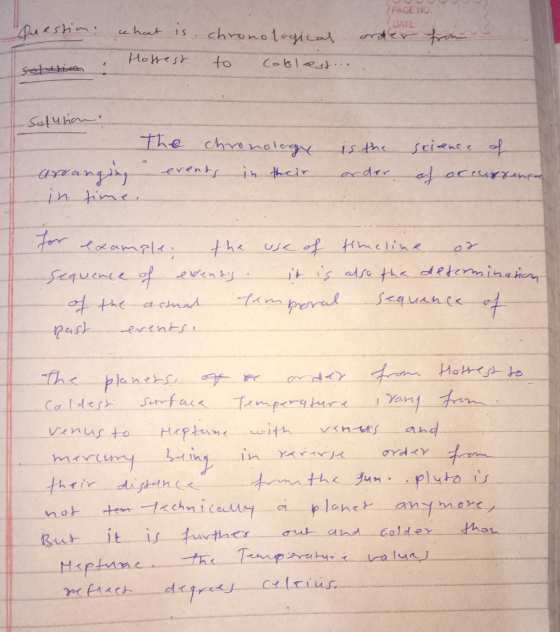 PAGE NO.
DATE:
Question: what is chronological order from
solution : Hottest to coldest...
Solution:
The chronology is the science of
arranging events in their order of occurrence
in time.
for example; the use of timeline or
sequence of events. it is also the determination
of the actual Temporal sequence of
past events.
The planets, of or order from Hottest to
coldest surface Temperature, rang from
venus to Neptune with venus and
mercury being in reverse order from
their distance from the sun. pluto is
not ten technically a planet anymore,
But it is further out and colder than
Neptune. the Temperature values
reflect degrees celsius.